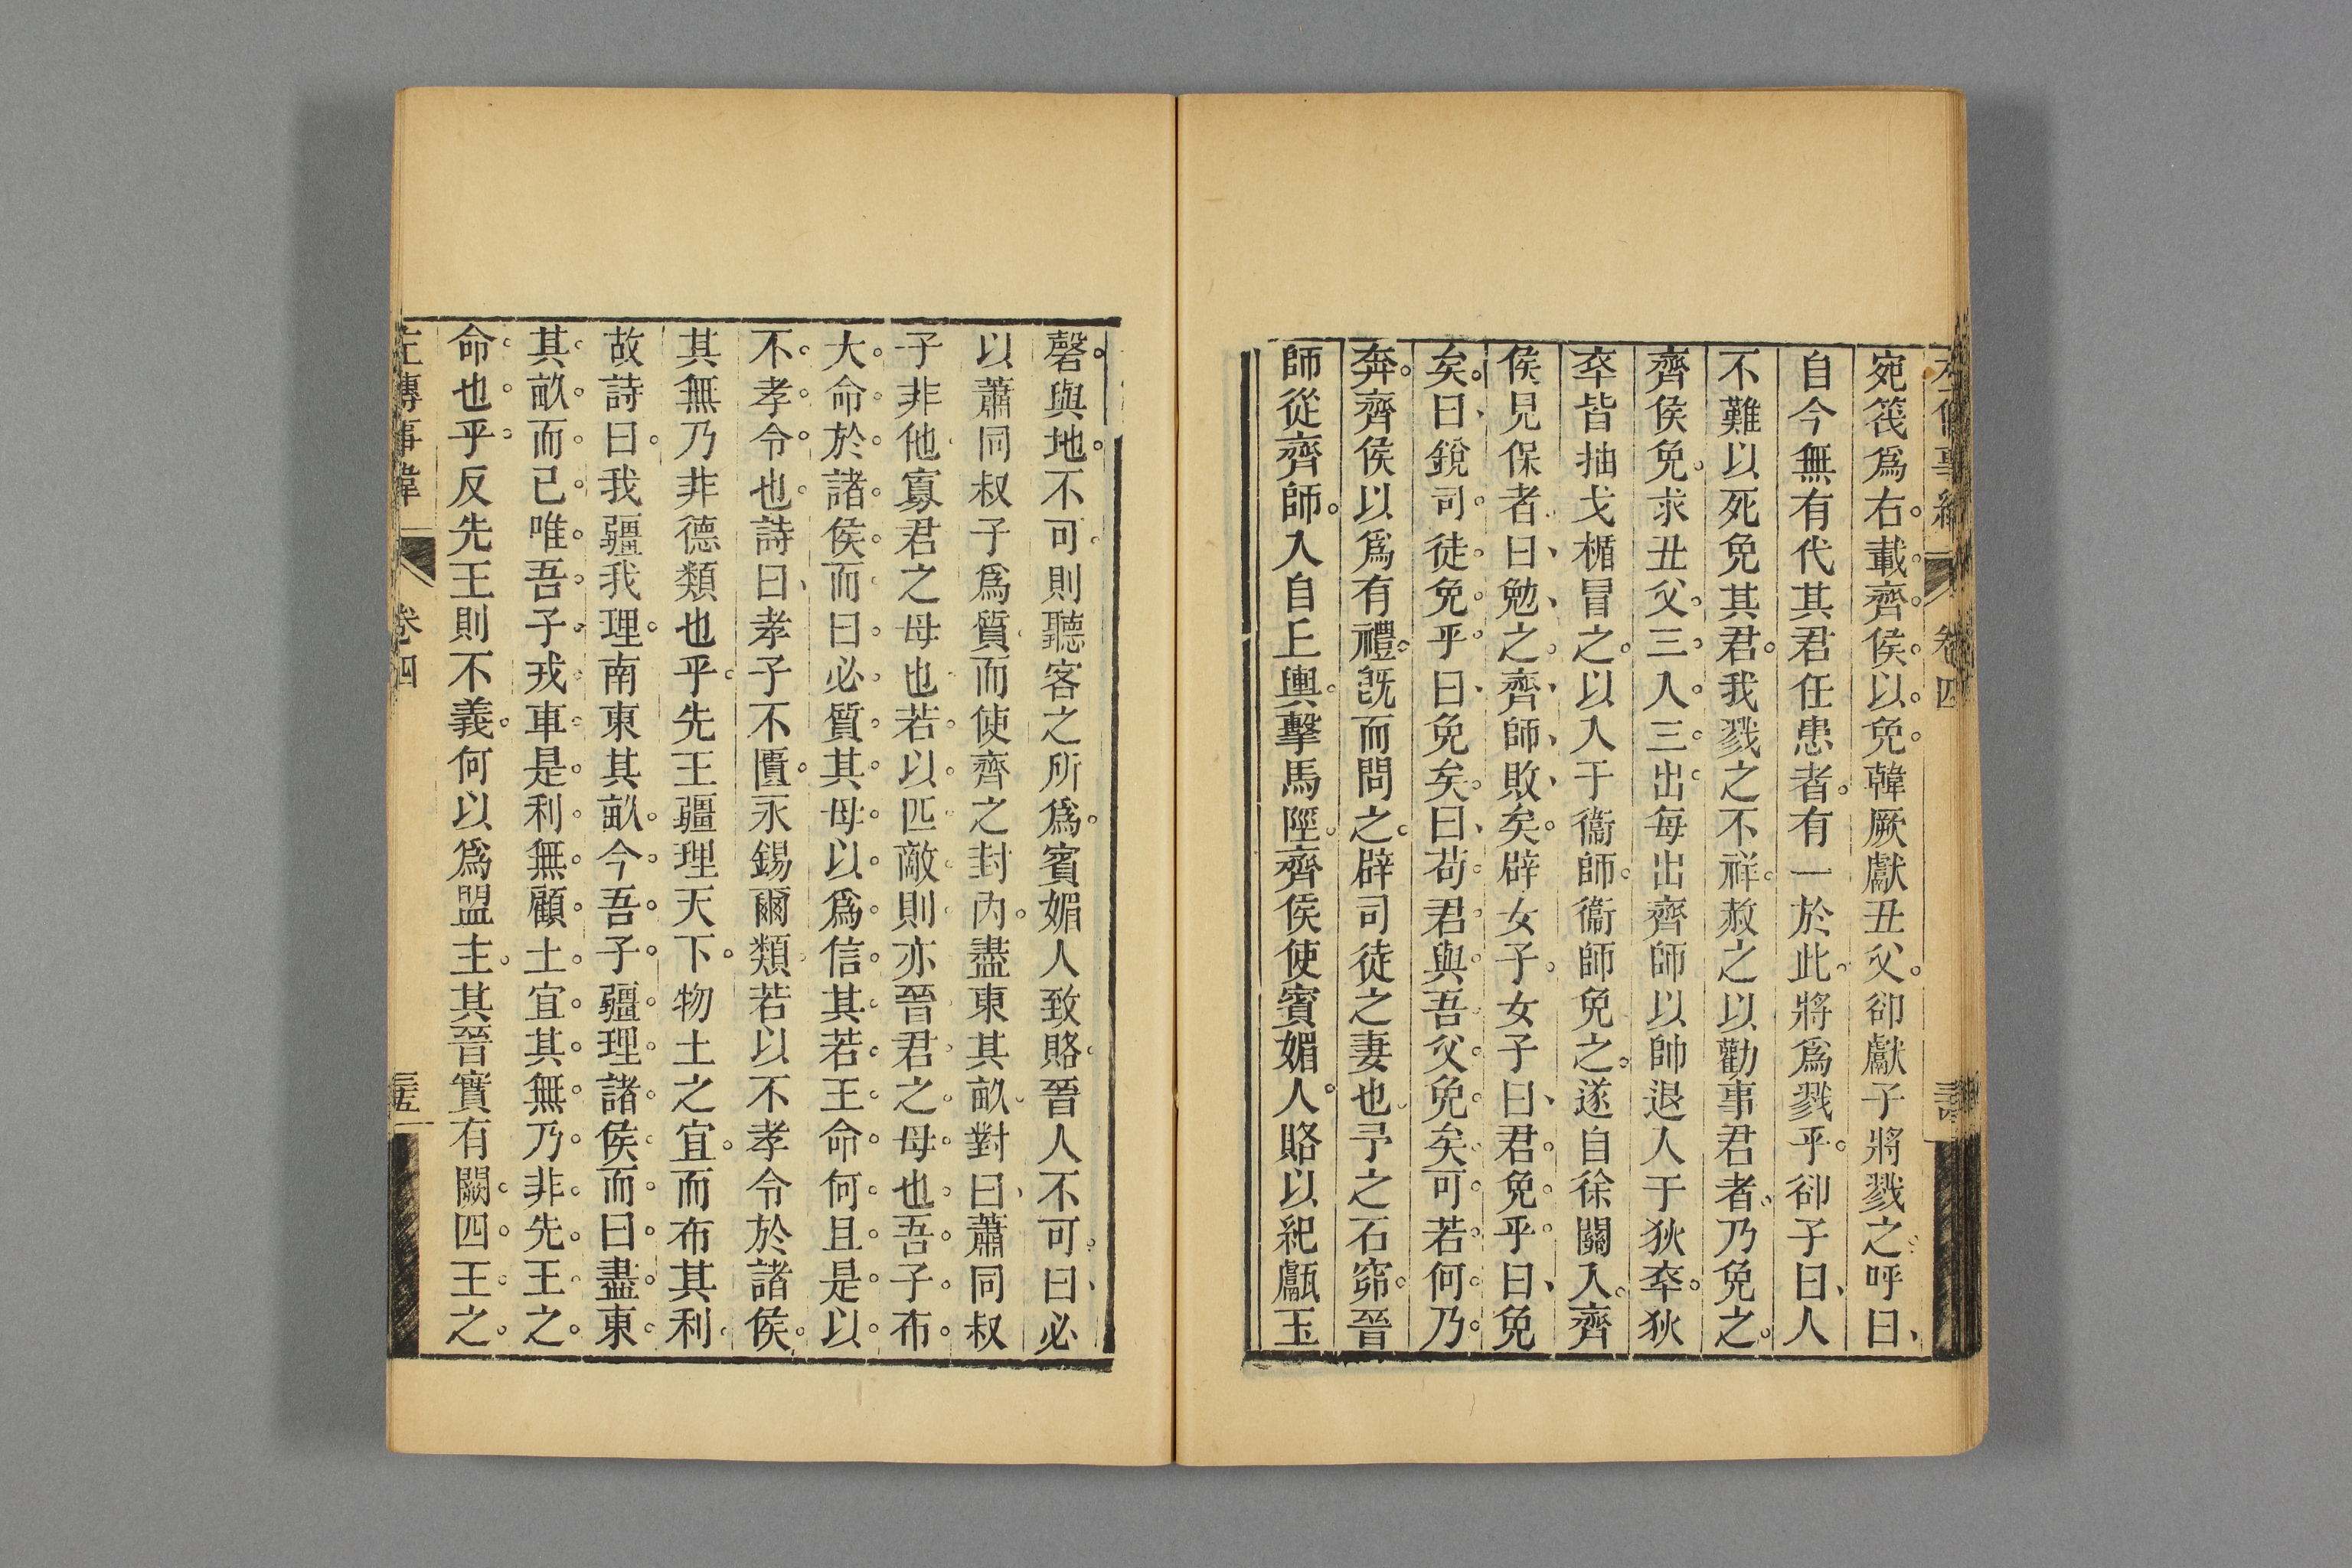 宛筏爲右載齊侯以免韓厥獻丑父卻獻子將戮之呼曰
自今無有代其君任患者有一於此將爲戮乎卻子曰人
不難以死免其君我戮之不祥赦之以勸事君者乃免之
齊侯免求丑父三入三出每出齊師以帥退入于狄卒狄
卒皆抽戈楯冒之以入于衞師衞師免之遂自徐關入齊
侯見保者曰勉之齊師敗矣辟女子女子曰君免乎曰免
矣曰銳司徒免乎曰免矣曰苟君與吾父免矣可若何乃
奔齊侯以爲有禮旣而問之辟司徒之妻也予之石窌晉
師從齊師入自丘輿擊馬陘齊侯使賓媚人賂以紀甗玉
磬與地不可則聽客之所爲賓媚人致賂晉人不可曰必
以蕭同叔子爲質而使齊之封內盡東其畝對曰蕭同叔
子非他寡君之母也若以匹敵則亦晉君之母也吾子布
大命於諸侯而曰必質其母以爲信其若王命何且是以
不孝令也詩曰孝子不匱永錫爾類若以不孝令於諸侯
其無乃非德類也乎先王疆理天下物土之宜而布其利
故詩曰我疆我理南東其畝今吾子疆理諸侯而曰盡東
其畝而已唯吾子戎車是利無顧土宜其無乃非先王之
命也乎反先王則不義何以爲盟主其晉實有闕四王之
左傳事緯 卷四